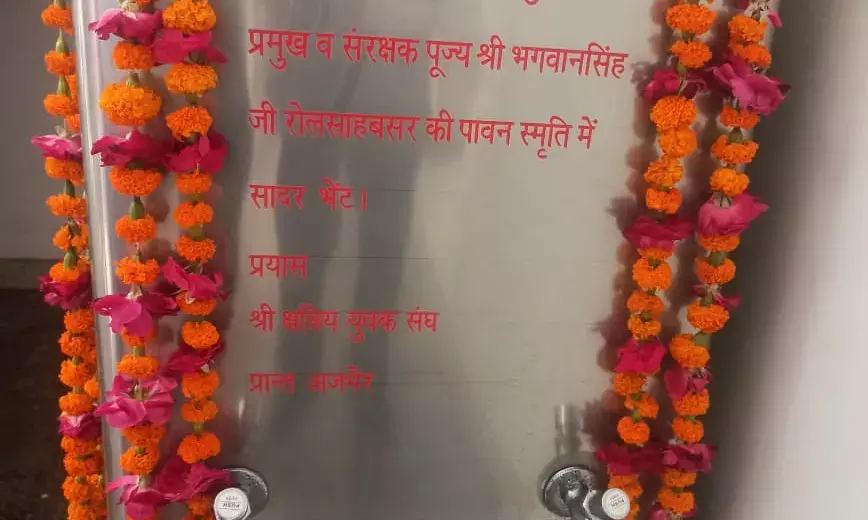 प्रमुख व संरक्षक पूज्य श्री भगवानसिंह
जी रोलसाहबसर की पावन स्मृति में
सादर भेंट।
प्रयाम
श्री क्षत्रिय युवक संघ
प्रान्त अजमेर
PUSH
PUSH